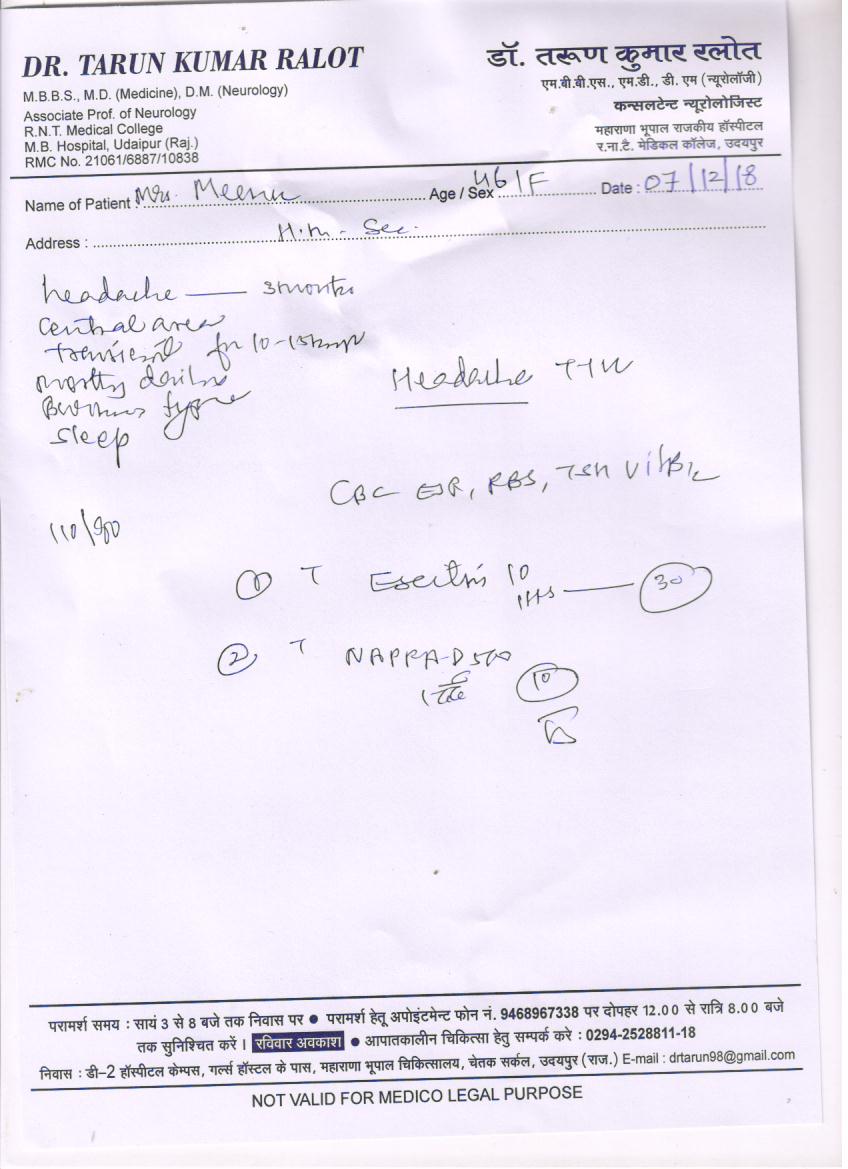 DR. TARUN KUMAR RALOT
M.B.B.S., M.D. (Medicine), D.M. (Neurology)
Associate Prof. of Neurology
R.N.T. Medical College
M.B. Hospital, Udaipur (Raj.)
RMC No. 21061/6887/10838
डॉ. तरूण कुमार रलोत
एम.बी.बी.एस., एम.डी., डी. एम (न्यूरोलॉजी)
कन्सलटेन्ट न्यूरोलोजिस्ट
महाराणा भूपाल राजकीय हॉस्पीटल
र.ना.टै. मेडिकल कॉलेज, उदयपुर
Name of Patient : Mrs. Meenu Age / Sex 46/F Date : 07/12/18
Address : H.m. - Sec.
headache — 3months
central area
transient for 10-15
mostly
type
sleep
110/90
Headache
CBC ESR, RBS, TSH Vit B12
① T 10
1HS — 30
② T NAPRA-D 500
10
परामर्श समय : सायं 3 से 8 बजे तक निवास पर ● परामर्श हेतू अपोइंटमेन्ट फोन नं. 9468967338 पर दोपहर 12.00 से रात्रि 8.00 बजे
तक सुनिश्चित करें । रविवार अवकाश ● आपातकालीन चिकित्सा हेतु सम्पर्क करे : 0294-2528811-18
निवास : डी–2 हॉस्पीटल केम्पस, गर्ल्स हॉस्टल के पास, महाराणा भूपाल चिकित्सालय, चेतक सर्कल, उदयपुर (राज.) E-mail : drtarun98@gmail.com
NOT VALID FOR MEDICO LEGAL PURPOSE